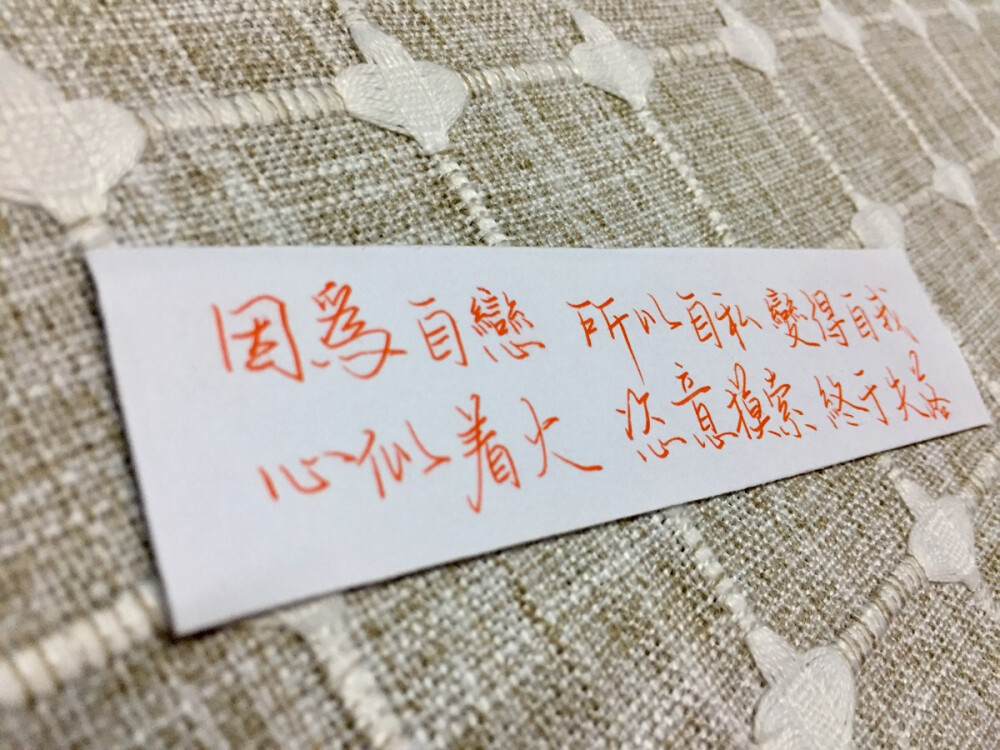 因爲自戀 所以自私 變得自我
心似着火 恣意摸索 終于失落